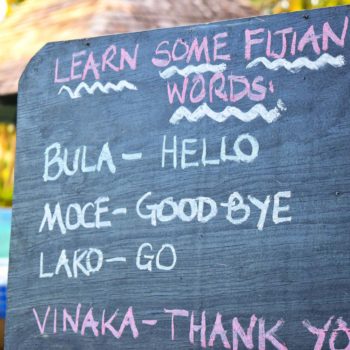 LEARN SOME FIJIAN
WORDS.
BULA - HELLO
MOCE - GOOD BYE
LAKO - GO
VINAKA - THANK YO